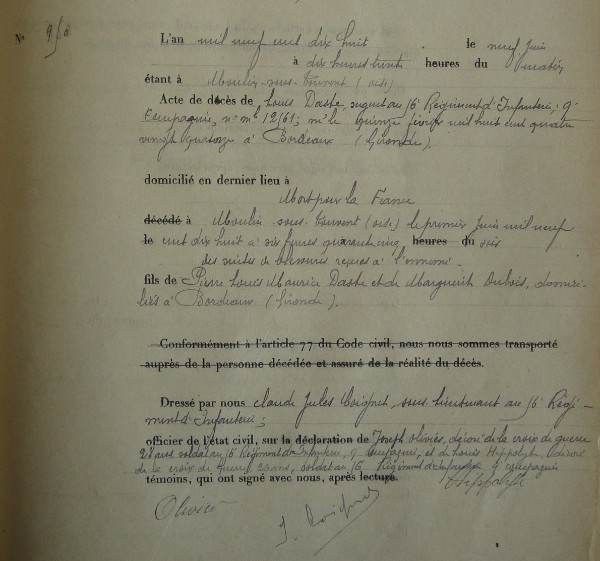 No
L'an mil neuf cent dix huit le neuf Juin
à dix heures trente heures du matin
étant à Moulin-sous-Touvent (oise)
Acte de décès de Louis Daste, sergent au 16e Régiment d'Infanterie, 9e
Compagnie, n° mle 12161; né le quinze février mil huit cent quatre
vingt quatorze à Bordeaux (Gironde),
domicilié en dernier lieu à
Mort pour la France
décédé à Moulin sous-Touvent (oise) le premier Juin mil neuf
le cent dix huit à six heures quarante cinq heures du soir
des suites de blessures reçues à l'ennemi.
fils de Pierre Louis Maurice Daste et de Marguerite Dubois, domici-
liés à Bordeaux (Gironde).
Conformément à l'article 77 du Code civil, nous nous sommes transporté
auprès de la personne décédée et assuré de la réalité du décès.
Dressé par nous Claude Jules Coignet, sous-lieutenant au 16e Régi-
ment d'Infanterie;
officier de l'état civil, sur la déclaration de Joseph Oliviés, décoré de la croix de guerre
ans soldat au 16e Régiment d'Infanterie, 9e Compagnie, et de Louis Hippolyte, décoré
de la croix de guerre ans, soldat au 16e Régiment d'Infanterie 9e compagnie
témoins, qui ont signé avec nous, après lecture.
Hippolyte
Oliviés
J. Coignet